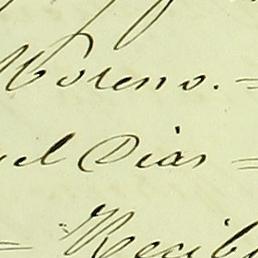 Moreno. =
el Dias =
= Recib